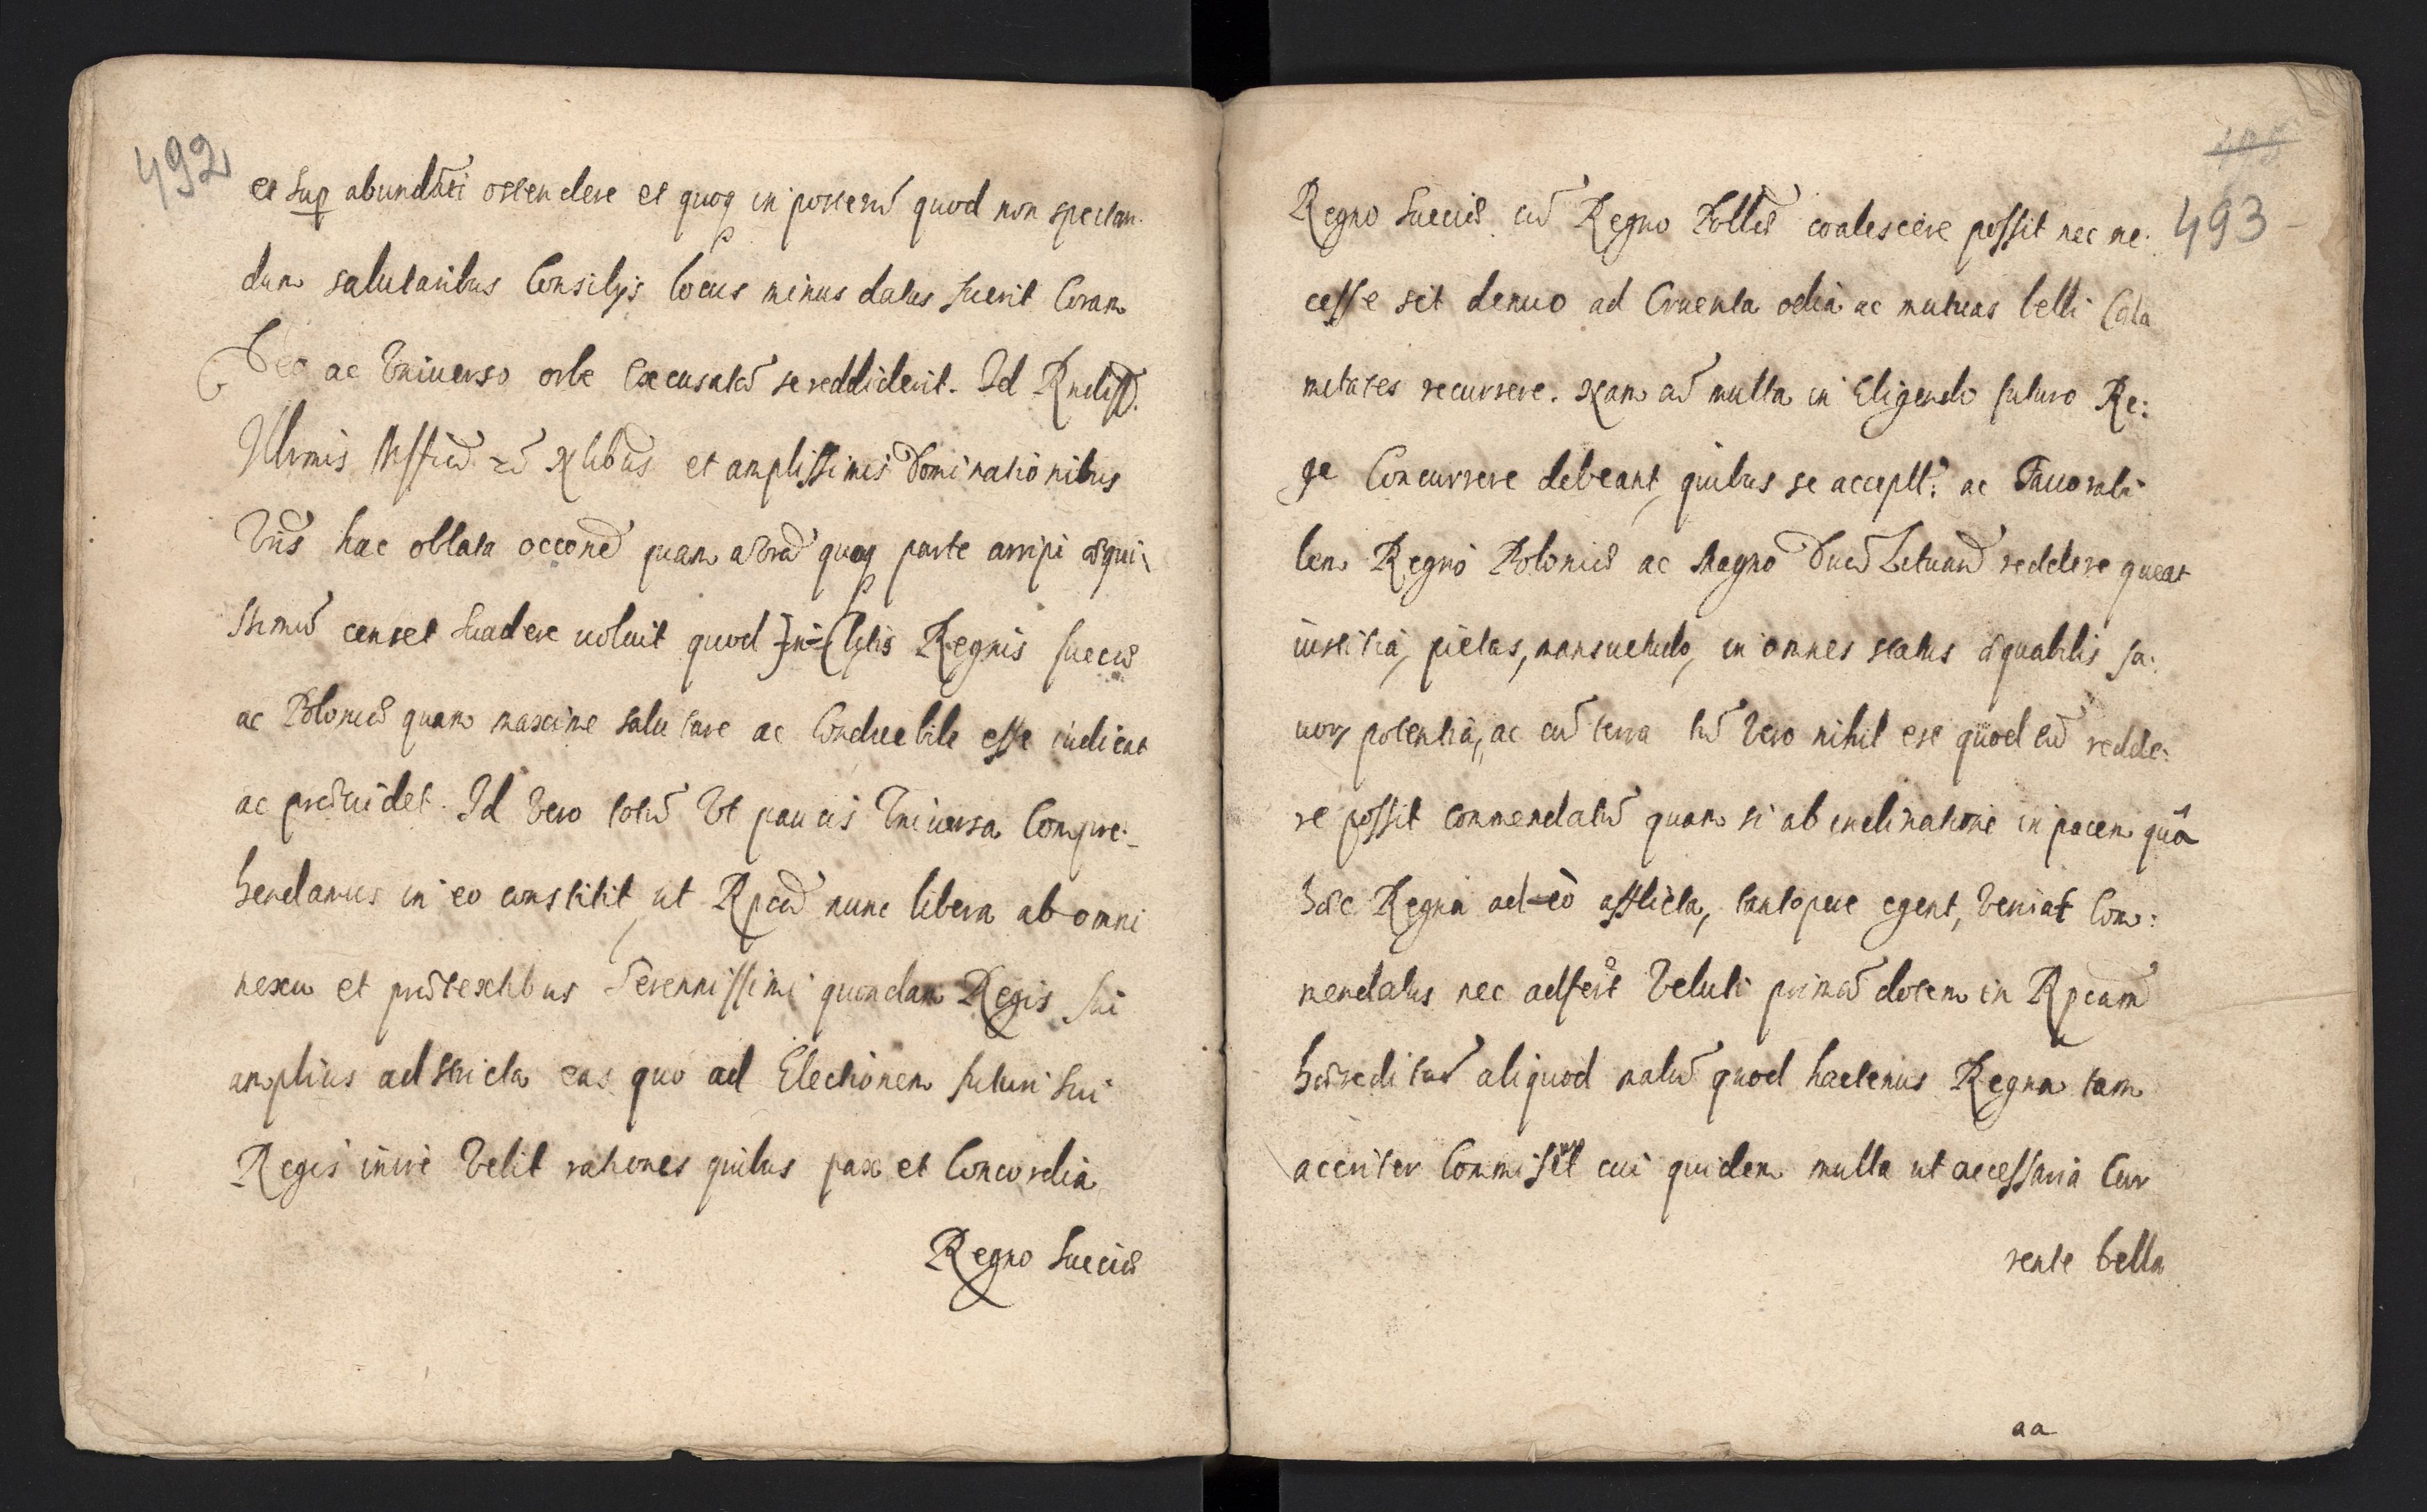 492
et sup abundāti ostendere et quoq in posterū quod non spectan:
dum salutaribus Consilijs locus minus datus fuerit Coram
Deo ac Universo orbe Excusatū se reddiderit. Id Rndiss.
Illrmis et amplissimis Dominationibus
Vris hac oblata occone quam quoq parte arripi æqui
ssimū censet suadere voluit quod In-Clytis Regnis Sueciæ
ac Poloniæ quam maxime salutare ac Conducibile esse iudicat
ac prævidet. Id Vero totū Vt paucis Universa Compre:
hendamus in eo constitit, ut Rpca nunc libera ab omni
nexu et prætextibus Serennissimi quondam Regis sui
amplius adstricta eas quo ad Electionem futuri sui
Regis inire Velit rationes quibus pax et Concordia
Regno Sueciæ
493
Regno Sueciæ cū Regno Pollæ coalescere possit nec ne:
cesse sit denuo ad Cruenta odia ac mutuas belli Cala
mitates recurrere. Nam cū multa in Eligendo futuro Re:
ge Concurrere debeant, quibus se acceptt: ac Favorabi
lem Regno Poloniæ ac Magno Ducū Lituanæ reddere queat
iustitia, pietas, mansuetudo, in omnes status æquabilis fa:
uor, potentia, ac cū terra tū Vero nihil ese quod eū redde:
re possit commendatū quam si ab inclinatione in pacem quâ
hæc Regna ad-eò afflicta, tantopere egent, Veniat Com:
mendatus nec adferat Veluti primā dotem in Rpcam
hæreditar aliquod malū quod hactenus Regna tam
acceriter Commisit cui quidem multa ut necessaria Cur
rente bella
aa